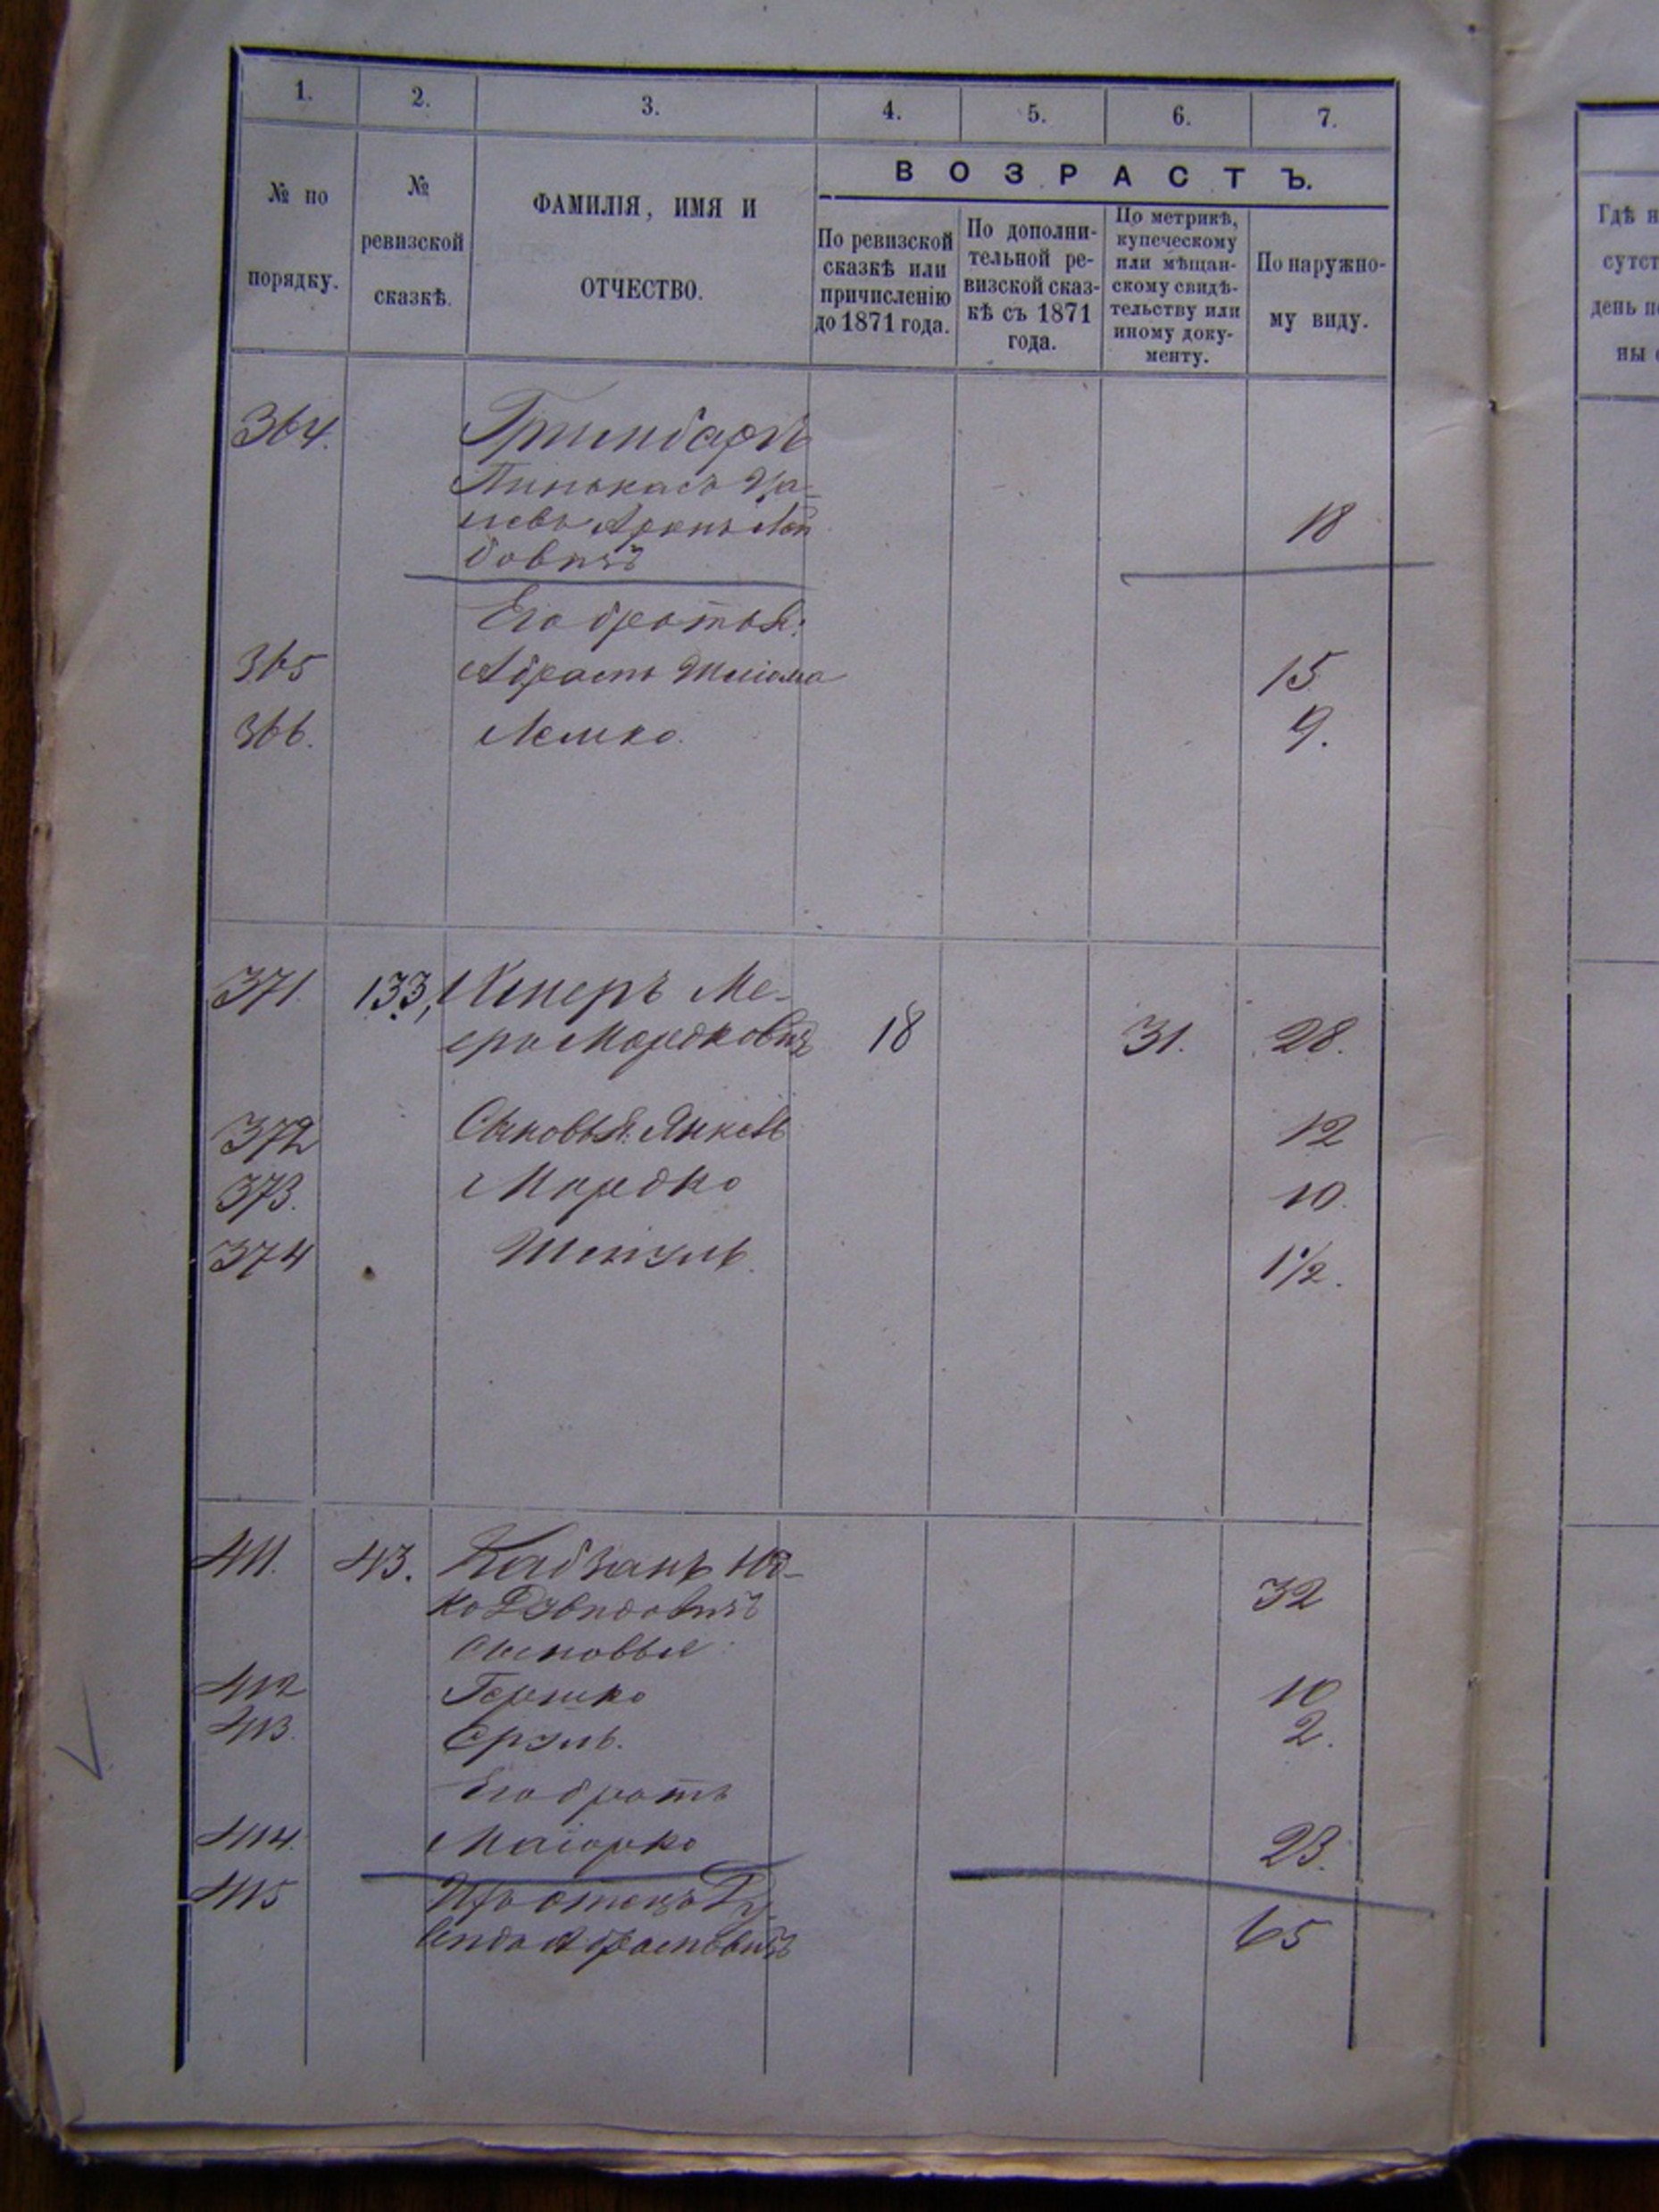 1. 2. 3. 4. 5. 6. 7.
№ по порядку.
№ ревизской сказкѣ.
ФАМИЛІЯ, ИМЯ И ОТЧЕСТВО.
ВОЗРАСТЪ.
По ревизской сказкѣ или причисленію до 1871 года.
По дополни-
тельной ре-
визской сказ-
кѣ съ 1871
года.
По метрикѣ,
купеческому
или мѣщан-
скому свидѣ-
тельству или
иному доку-
менту.
По наружно-
му виду.
364.
Пинькасъ
18
Его братья:
365 Абрамъ Шліома 15
366. Лейко. 9.
371. 133, Ме-
еръ Мордковичъ 18 31. 28.
372 Сыновья: Янкель 12
373. Мордко 10.
374 1½.
411. 43. Кабзанъ Юд-
ко Дувидовичъ 32
Сыновья:
412 Гершко 10
413. Сруль. 2.
Его братъ
414. Маіорко 23.
415 Ихъ отецъ Ду-
видъ Абрамовичъ 65
Гдѣ н
сутст
день п
ны